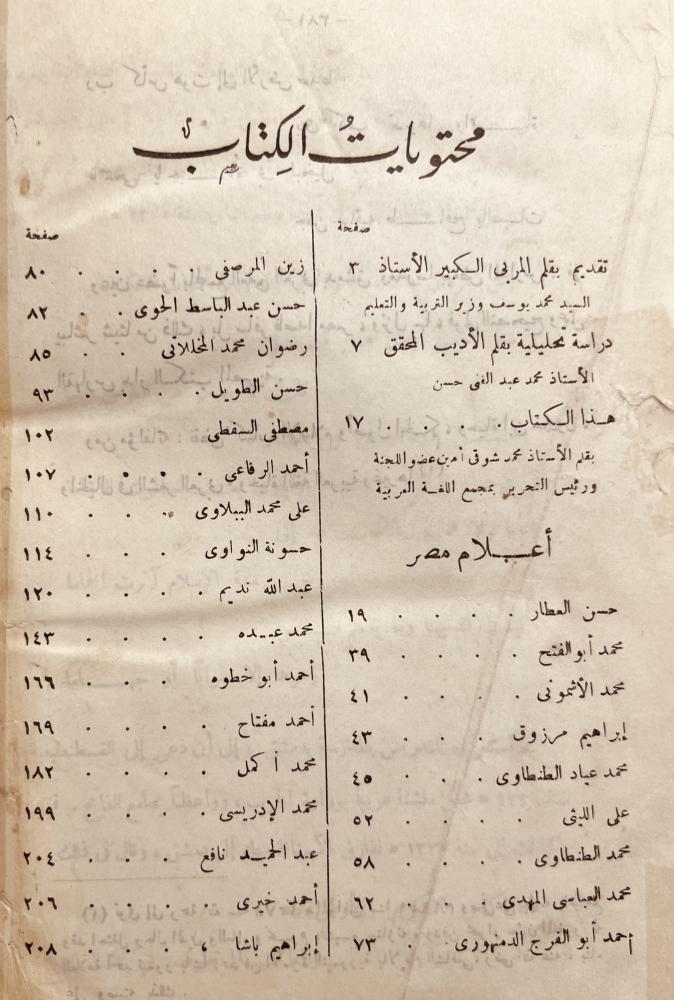 محتويات الكتاب
صفحة
تقديم بقلم المربى الكبير الأستاذ ٣
السيد محمد يوسف وزير التربية والتعليم
دراسة تحليلية بقلم الأديب المحقق ٧
الأستاذ محمد عبد الغنى حسن
هذا الكتاب . . . . ١٧
بقلم الأستاذ محمد شوقى أمين عضو اللجنة
ورئيس التحرير بمجمع اللغة العربية
أعلام مصر
حسن العطار . . . . ١٩
محمد أبو الفتح . . . . ٣٩
محمد الأشمونى . . . . ٤١
إبراهيم مرزوق . . . . ٤٣
محمد عياد الطنطاوى . . . ٤٥
على الليثى . . . . ٥٢
محمد الطنطاوى . . . . ٥٨
محمد العباسى المهدى . . . ٦٢
أحمد أبو الفرج الدمنهورى . . ٧٣
صفحة
زين المرصفى . . . . ٨٠
حسن عبد الباسط الحوى . . ٨٢
رضوان محمد المخللاتى . . ٨٥
حسن الطويل . . . . ٩٣
مصطفى السفطى . . . ١٠٢
أحمد الرفاعى . . . . ١٠٧
على محمد الببلاوى . . . ١١٠
حسونة النواوى . . . ١١٤
عبد الله نديم . . . . ١٢٠
محمد عبده . . . . ١٤٣
أحمد أبو خطوه . . . ١٦٦
أحمد مفتاح . . . . ١٦٩
محمد أكمل . . . . ١٨٢
محمد الإدريسى . . . . ١٩٩
عبد الحميد نافع . . . ٢٠٤
أحمد خيرى . . . . ٢٠٦
إبراهيم باشا . . . . ٢٠٨